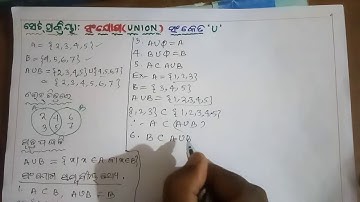 ସେଟ୍ ପ୍ରକ୍ରିୟା: ସଂଯୋଗ(UNION) ସଂକେତ 'U'
A = {2,3,4,5}
B = {4,5,6,7}
AUB = {2,3,4,5}U{4,5,6,7}
= {2,3,4,5,6,7}
AUB = {x|x∈A x∈B}
1. A⊂B, AUB=B
3. AUΦ=A
4. BUΦ=B
5. A⊂AUB
Ex- A={1,2,3}
B={3,4,5}
AUB={1,2,3,4,5}
{1,2,3}⊂{1,2,3,4,5}
∴ A⊂(AUB)
6. B⊂AUB